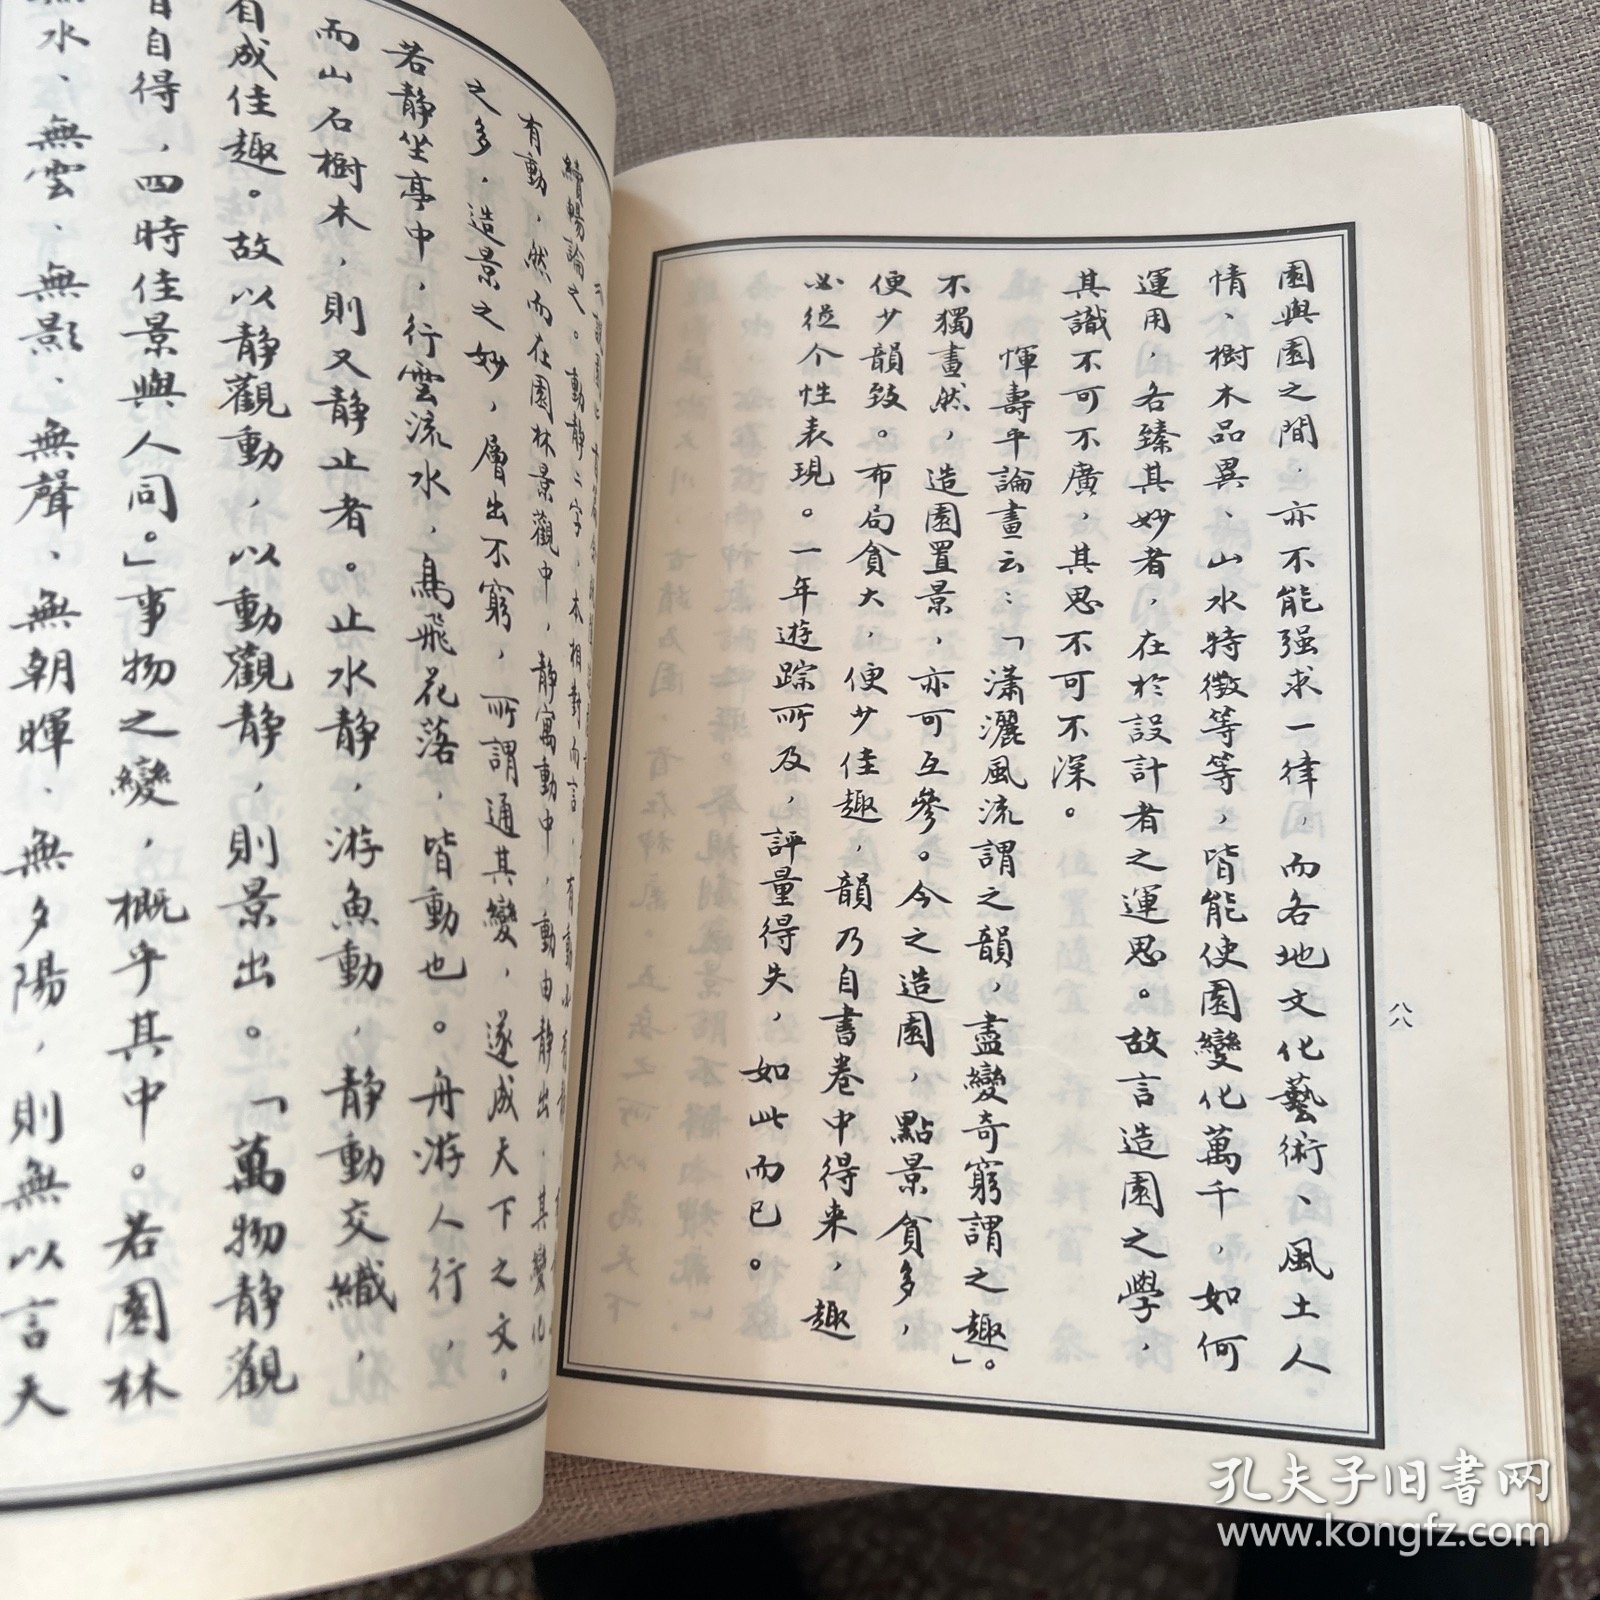 園與園之間，亦不能强求一律，而各地文化藝術、風土人
情、樹木品異、山水特徵等等，皆能使園變化萬千，如何
運用，各臻其妙者，在於設計者之運思。故言造園之學，
其識不可不廣，其思不可不深。
惲壽平論畫云：「瀟灑風流謂之韻，盡變奇窮謂之趣」。
不獨畫然，造園置景，亦可互參。今之造園，點景貪多，
便少韻致。布局貪大，便少佳趣，韻乃自書卷中得來，趣
必從个性表現。一年遊踪所及，評量得失，如此而已。
八八
續暢論之。動静二字，本相對而言，有動
有動，然而在園林景觀中，静寓動中，動由静出，其變化
之多，造景之妙，層出不窮，所謂通其變，遂成天下之文。
若静坐亭中，行雲流水，鳥飛花落，皆動也。舟游人行，
而山石樹木，則又静止者。止水静，游魚動，静動交織，
自成佳趣。故以静觀動，以動觀静，則景出。「萬物静觀
自得，四時佳景與人同。」事物之變，概乎其中。若園林
無水、無雲、無影、無聲、無朝暉、無夕陽，則無以言天
孔夫子旧書网
www.kongfz.com